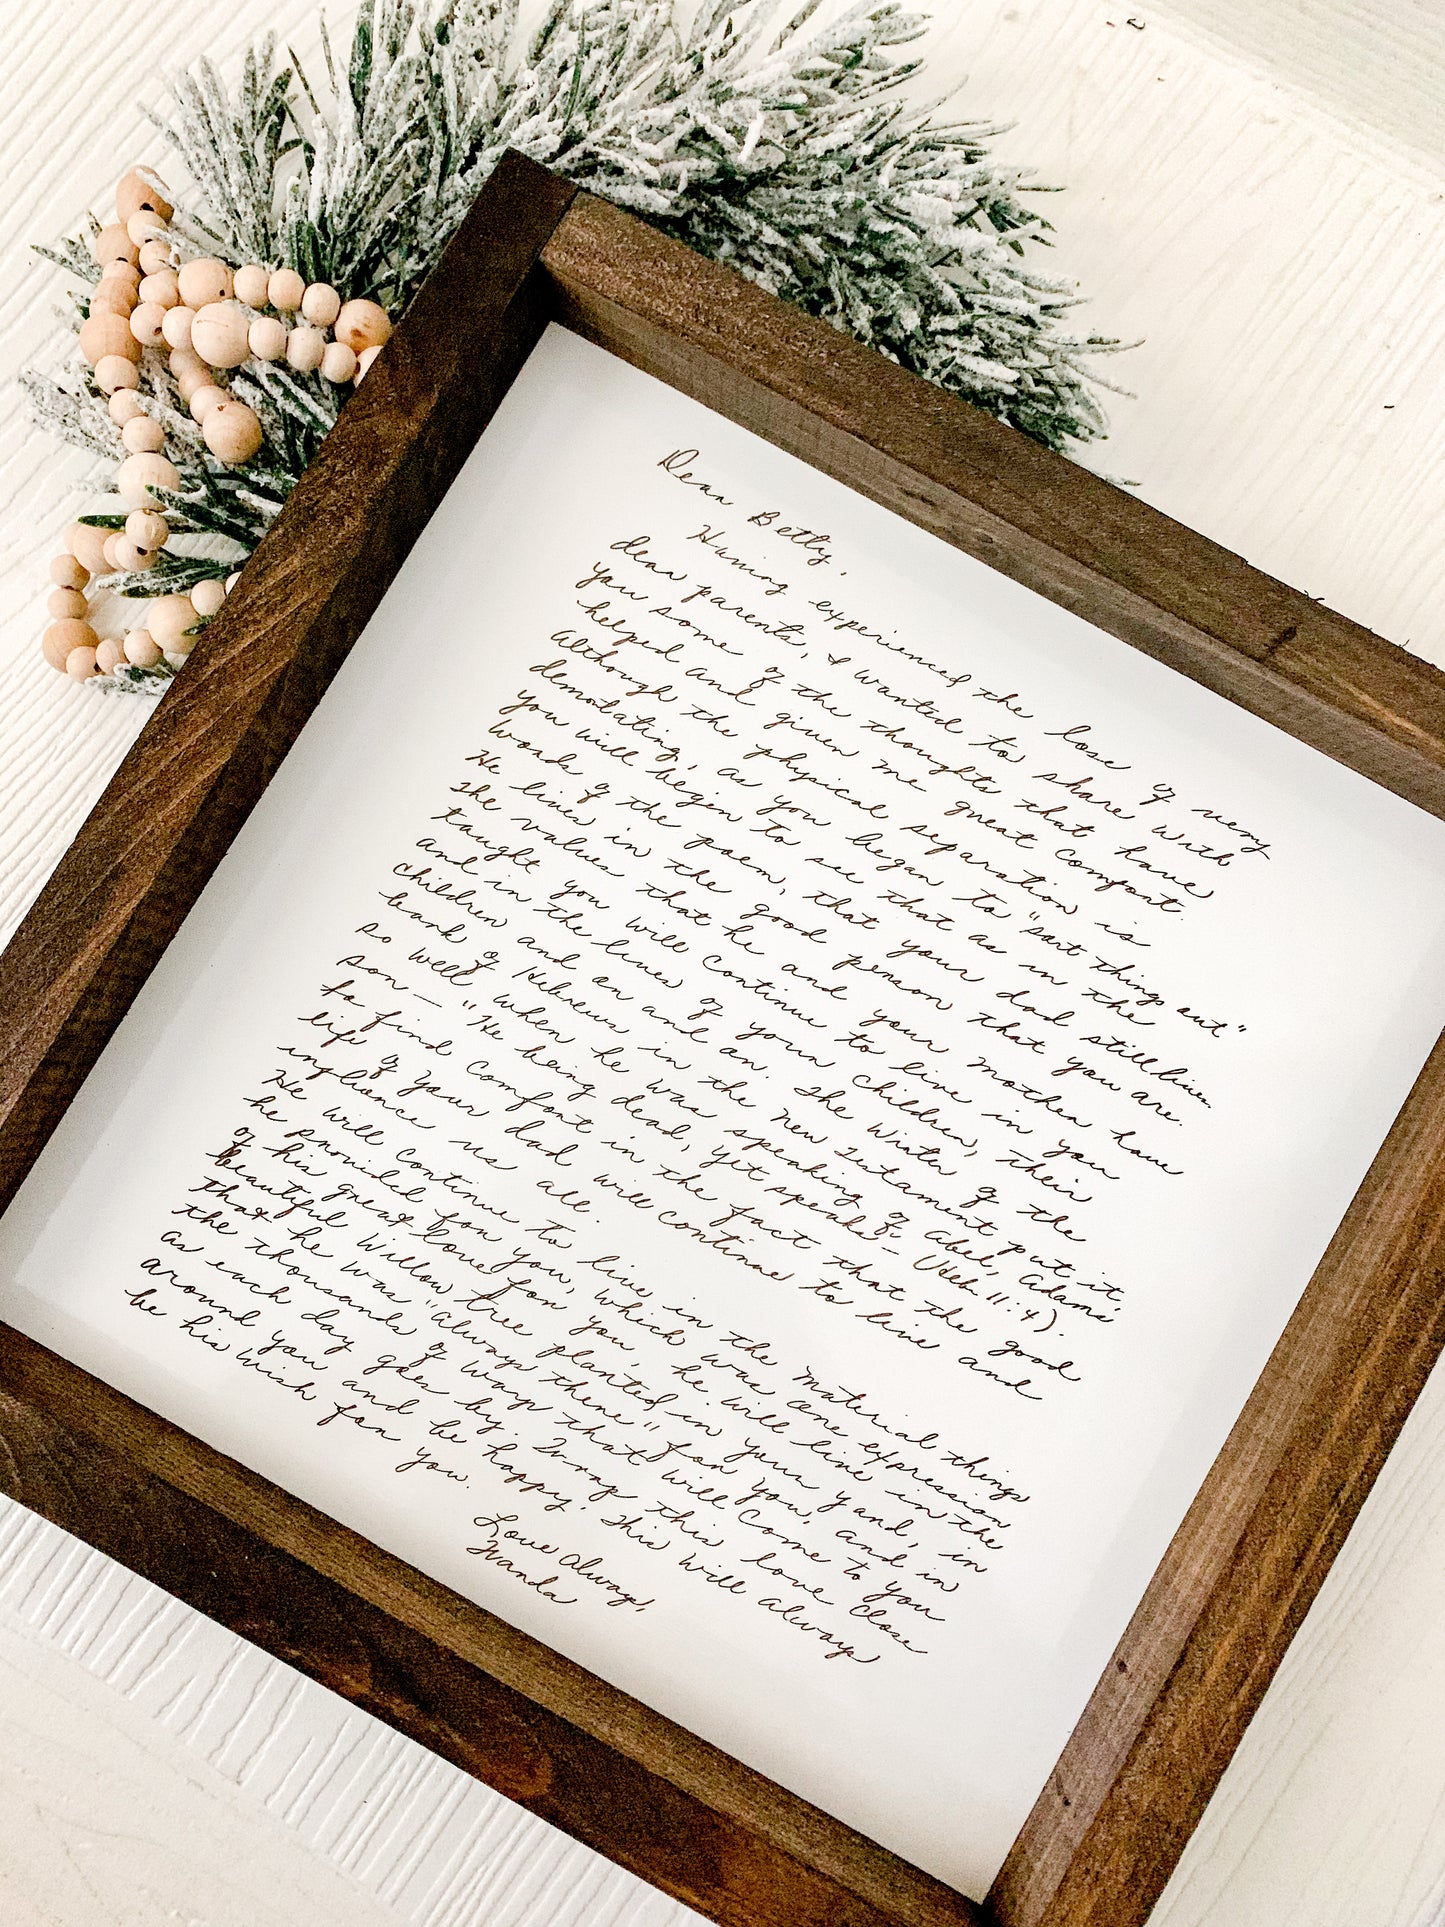 Dear Betty,
Having experienced the lose of very
dear parents, I wanted to share with
you some of the thoughts that have
helped and given me great comfort.
Although the physical separation is
demostating, as you began to "sort things out"
you will begin to see that as in the
words of the poem, that your dad still lives.
He lives in the good person that you are.
The values that he and your mother have
taught you will continue to live in you
and in the lives of your children, their
children and on and on. The writer of the
book of Hebrews in the New Testament put it
so well when he was speaking of Abel, Adams'
son — "He being dead, yet speaks" - (Heb. 11:4).
to find comfort in the fact that the good
life of your dad will continue to live and
influence us all.
He will continue to live in the material things
he provided for you, which was one expression
of his great love for you, he will live in the
beautiful willow tree planted in your yard, in
that he was "always there" for you, and in
the thousands of ways that will come to you
as each day goes by. Wrap this love close
around you and be happy. This will always
be his wish for you.
Love Always,
Wanda